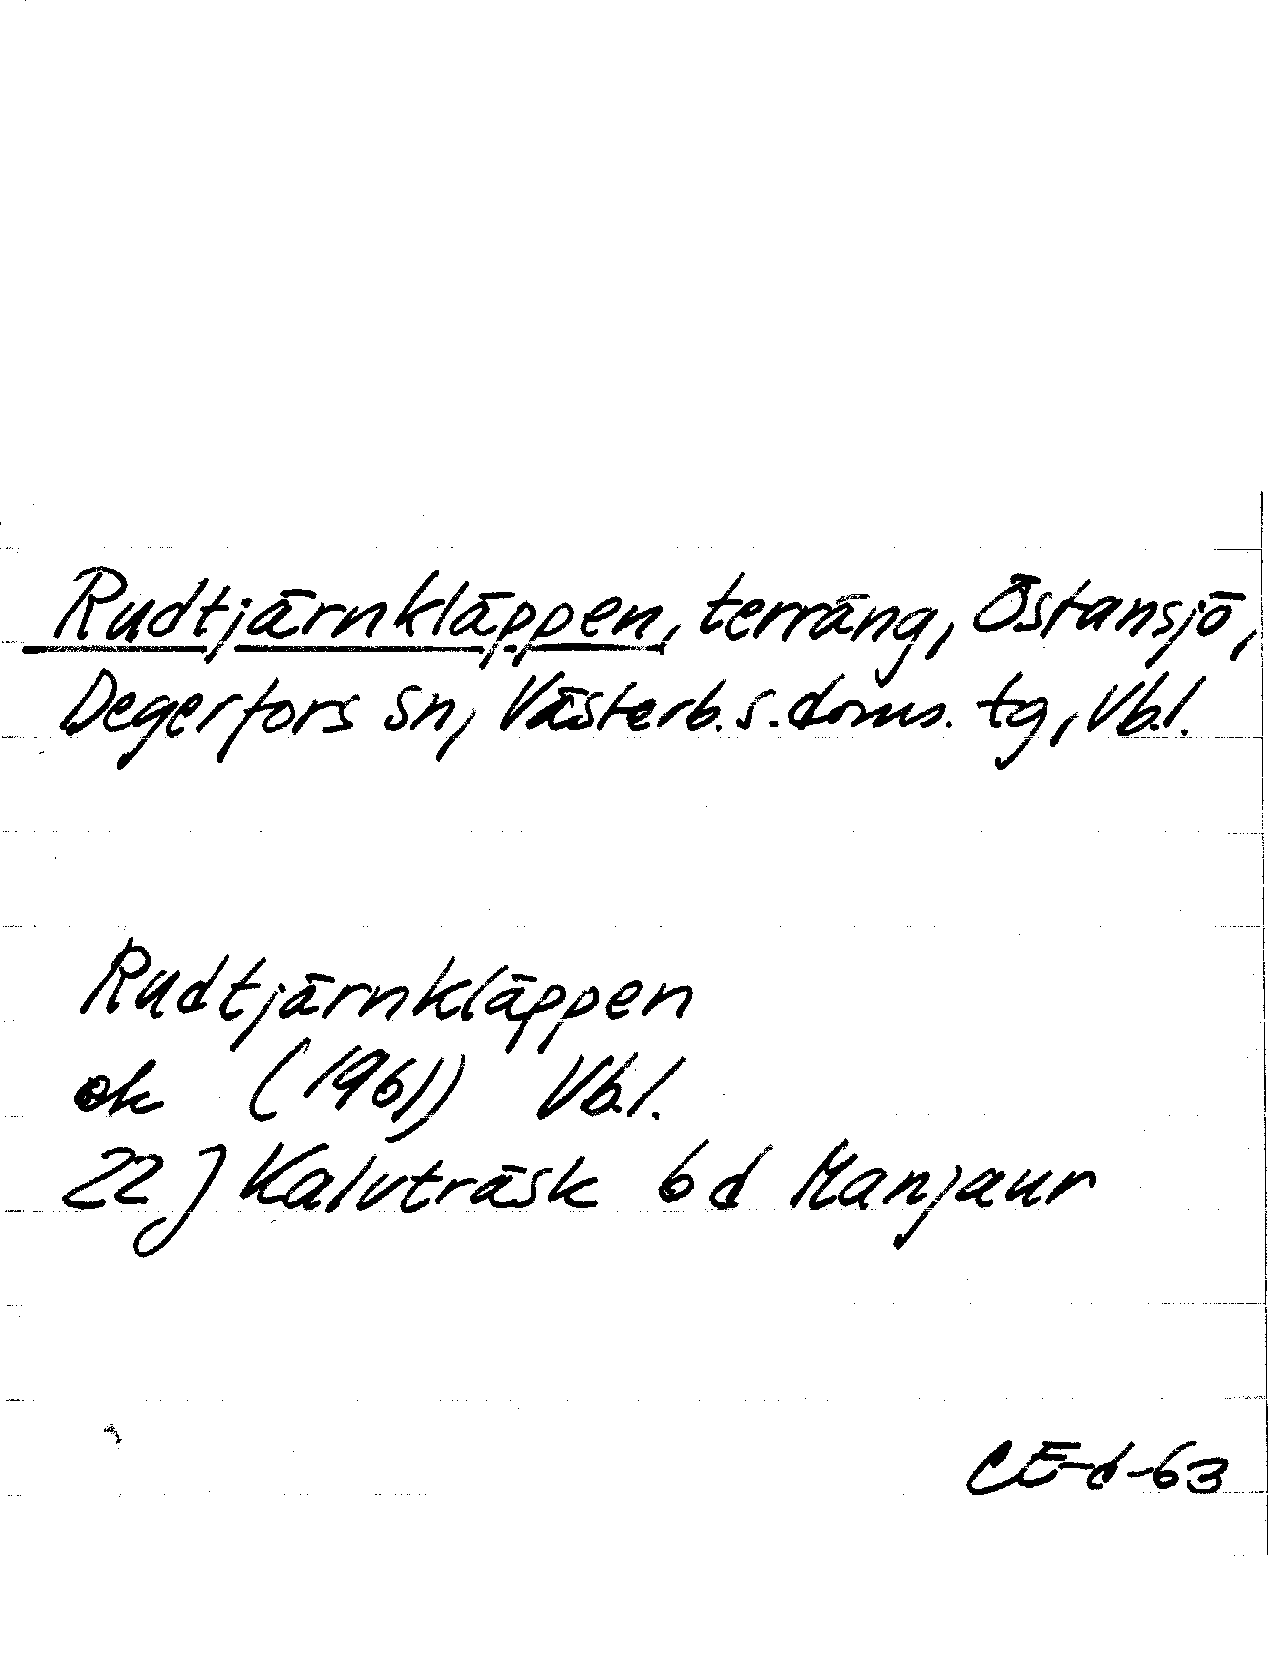 Rudtjärnkläppen, terräng, Östansjö,
Degerfors sn, Västerb. s. doms. tg, Vb.l.
Rudtjärnkläppen
ek (1961) Vb.l.
22 J Kalvträsk 6 d Manjaur
CE-d-63